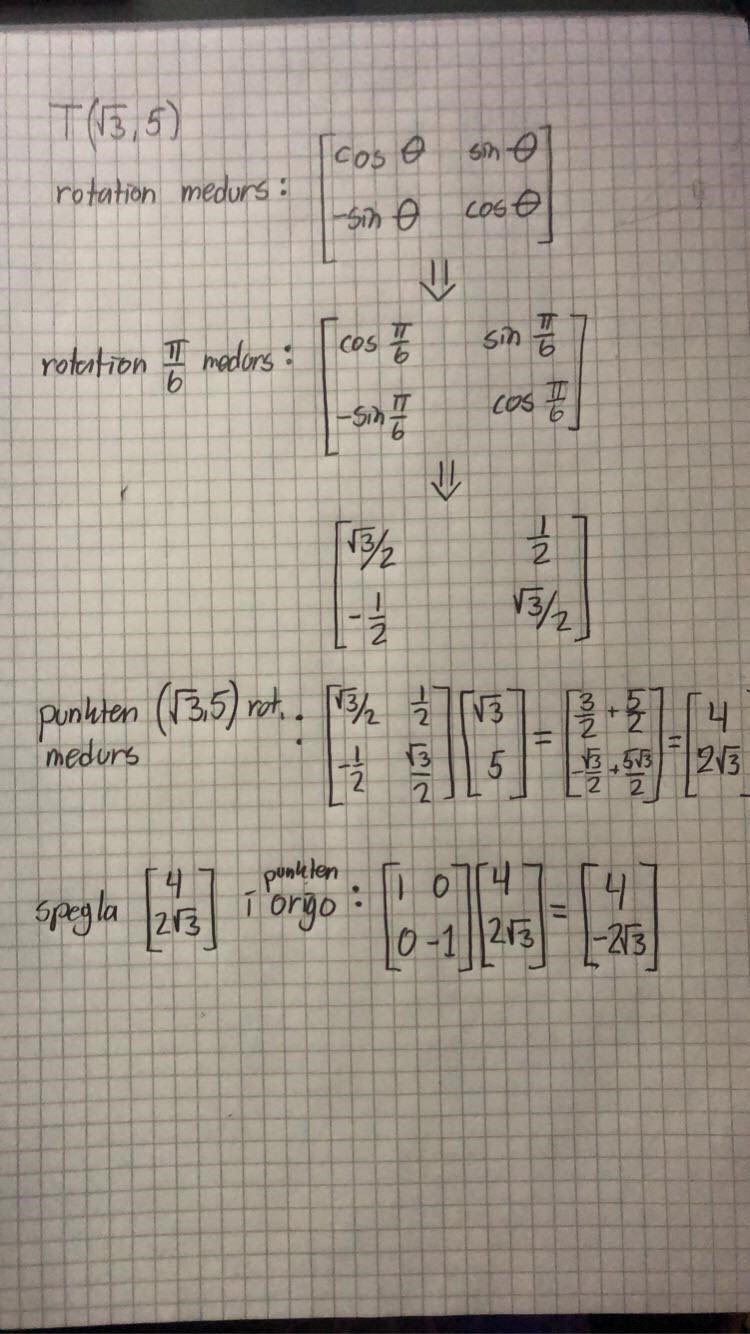 T(√3, 5)
rotation medurs: [cos θ sin θ
-sin θ cos θ]
⇓
rotation π/6 medurs: [cos π/6 sin π/6
-sin π/6 cos π/6]
⇓
[√3/2 1/2
-1/2 √3/2]
punkten (√3,5) rot. medurs : [√3/2 1/2 -1/2 √3/2] [√3 5] = [3/2 + 5/2 -√3/2 + 5√3/2] = [4 2√3]
spegla [4 2√3] i punkten origo: [1 0 0 -1] [4 2√3] = [4 -2√3]